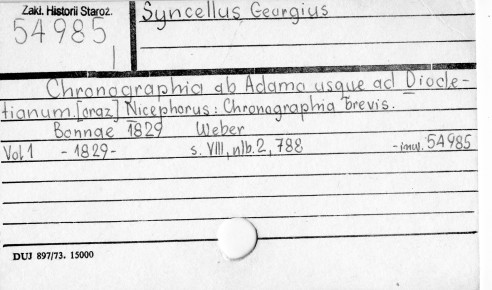 Zakł. Historii Staroż.
Syncellus Georgius
54985
1
Chronographia ab Adamo usque ad Diocle-
tianum. [oraz] Nicephorus: Chronographia brevis.
Bonnae 1829 Weber
Vol 1 - 1829- s. VIII, nlb. 2, 788 - inw. 54985
DUJ 897/73. 15000